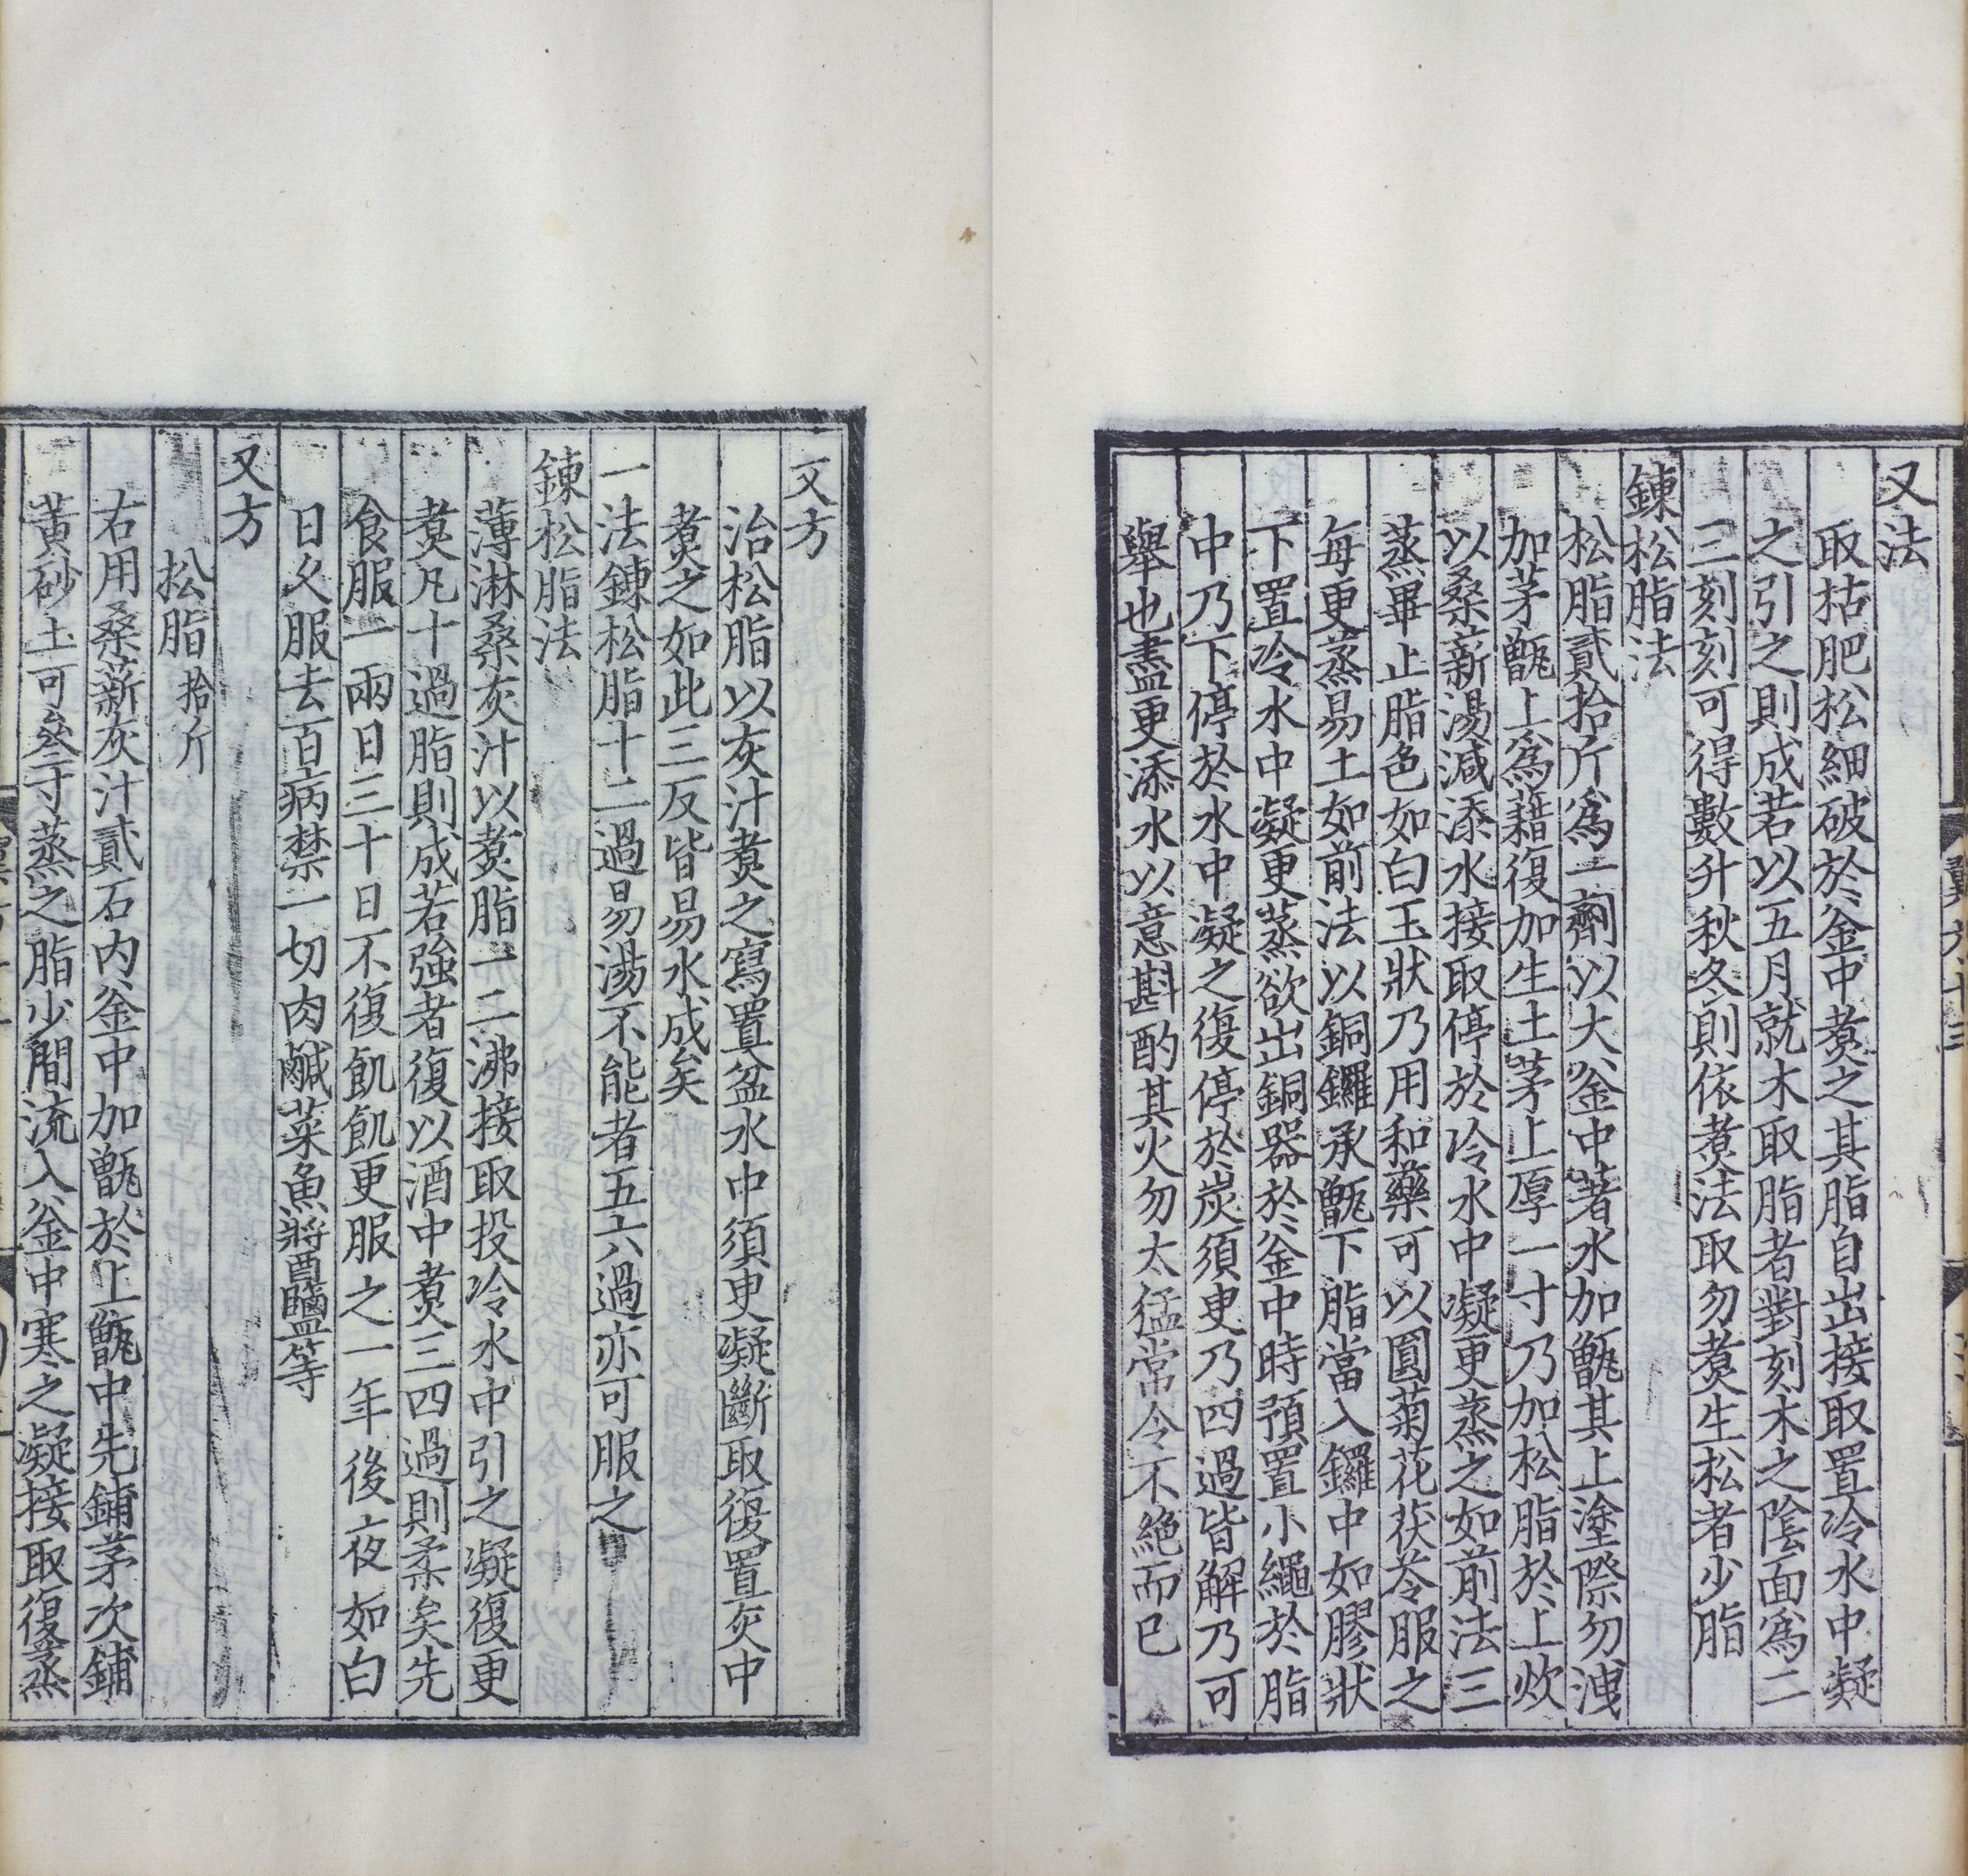 又法
取枯肥松細破於釜中煑之其脂自出接取置冷水中凝
之引之則成若以五月就木取脂者對刻木之陰面爲二
三刻刻可得數升秋冬則依煑法取勿煑生松者少脂
鍊松脂法
松脂貳拾斤爲一劑以大釜中著水加甑其上塗際勿洩
加茅甑上爲藉復加生土茅上厚一寸乃加松脂於上炊
以桑薪湯減添水接取停於冷水中凝更蒸之如前法三
蒸畢止脂色如白玉狀乃用和藥可以圓菊花茯苓服之
每更蒸易土如前法以銅鑼承甑下脂當入鑼中如膠狀
下置冷水中凝更蒸欲出銅器於釜中時預置小繩於脂
中乃下停於水中凝之復停於炭須臾乃四過皆解乃可
舉也盡更添水以意斟酌其火勿太猛常令不絕而已
又方
治松脂以灰汁煑之寫置盆水中須臾凝斷取復置灰中
煑之如此三反皆易水成矣
一法鍊松脂十二過易湯不能者五六過亦可服之
鍊松脂法
薄淋桑灰汁以煑脂一二沸接取投冷水中引之凝復更
煑凡十過脂則成若強者復以酒中煑三四過則柔矣先
食服一兩日三十日不復飢飢更服之一年後夜如白
日久服去百病禁一切肉鹹菜魚醬鹽等
又方
松脂拾斤
右用桑薪灰汁貳石内釜中加甑於上甑中先鋪茅次鋪
黃砂土可叄寸蒸之脂少間流入釜中寒之凝接取復蒸